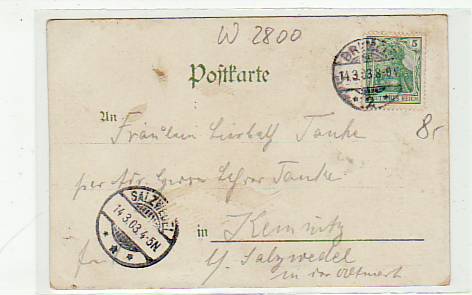 W 2800
BREMEN
14.3.03.8-9V.
* 2 *
5
DEUTSCHES REICH
Postkarte
8,-
An Fräulein Lisbeth Tanke
per Adr. Herrn Lehrer Tanke
SALZWEDEL
14.3.03.4-5N
in Kemnitz
b/ Salzwedel
in der Altmark